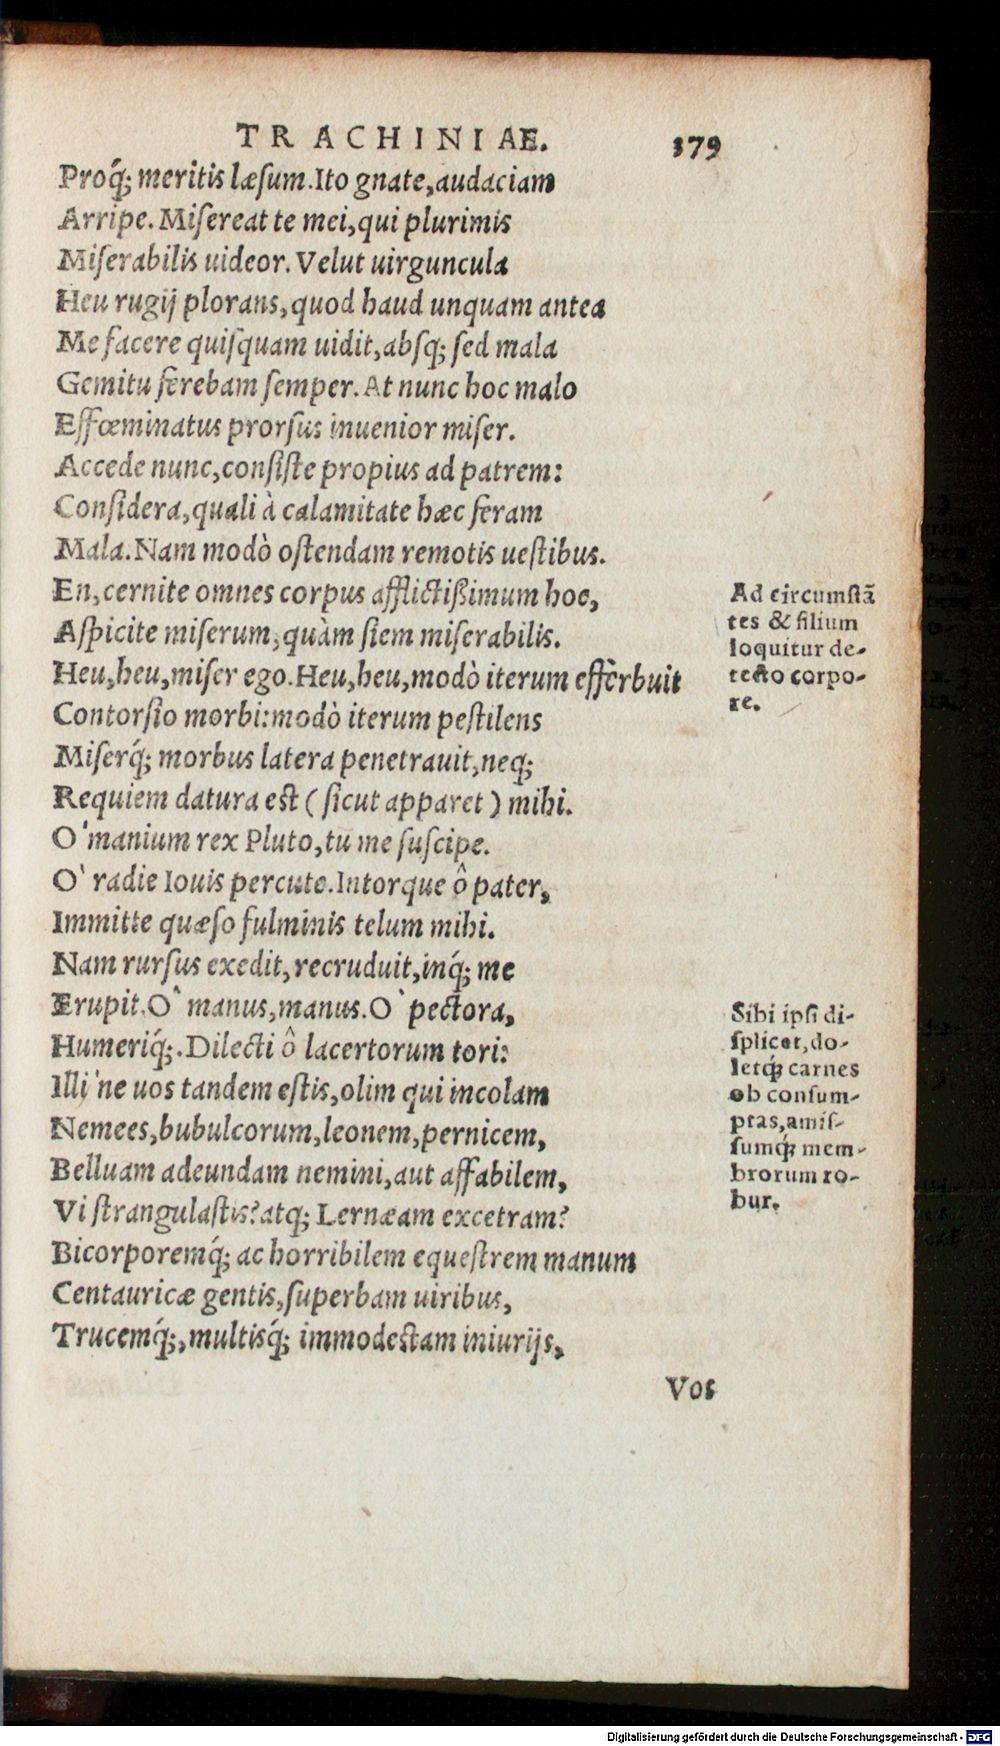 TRACHINIAE. 179
Proq́; meritis læſum. Ito gnate, audaciam
Arripe. Miſereat te mei, qui plurimis
Miſerabilis uideor. Velut uirguncula
Heu rugij plorans, quod haud unquam antea
Me facere quiſquam uidit, abſq; ſed mala
Gemitu ferebam ſemper. At nunc hoc malo
Effœminatus prorſus inuenior miſer.
Accede nunc, conſiſte propius ad patrem:
Conſidera, quali à calamitate hæc feram
Mala. Nam modò oſtendam remotis ueſtibus.
En, cernite omnes corpus afflictißimum hoc,
Aſpicite miſerum, quàm ſiem miſerabilis.
Heu, heu, miſer ego. Heu, heu, modò iterum efferbuit
Contorſio morbi: modò iterum peſtilens
Miſerq́; morbus latera penetrauit, neq;
Requiem datura est ( ſicut apparet ) mihi.
O' manium rex Pluto, tu me ſuſcipe.
O' radie Iouis percute. Intorque ô pater,
Immitte quæſo fulminis telum mihi.
Nam rurſus exedit, recruduit, inq́; me
Erupit. O^ manus, manus. O` pectora,
Humeriq́;. Dilecti ô lacertorum tori:
Illi'ne uos tandem eſtis, olim qui incolam
Nemees, bubulcorum, leonem, pernicem,
Belluam adeundam nemini, aut affabilem,
Vi ſtrangulaſtis? atq; Lernæam excetram?
Bicorporemq́; ac horribilem equeſtrem manum
Centauricæ gentis, ſuperbam uiribus,
Trucemq́;, multisq́; immodestam iniurijs,
Vos
Ad circumſtã
tes & filium
loquitur de-
tecto corpo-
re.
Sibi ipſi di-
ſplicet, do-
letq́; carnes
ob conſum-
ptas, amiſ-
ſumq́; mem-
brorum ro-
bur.
Digitalisierung gefördert durch die Deutsche Forschungsgemeinschaft - DFG